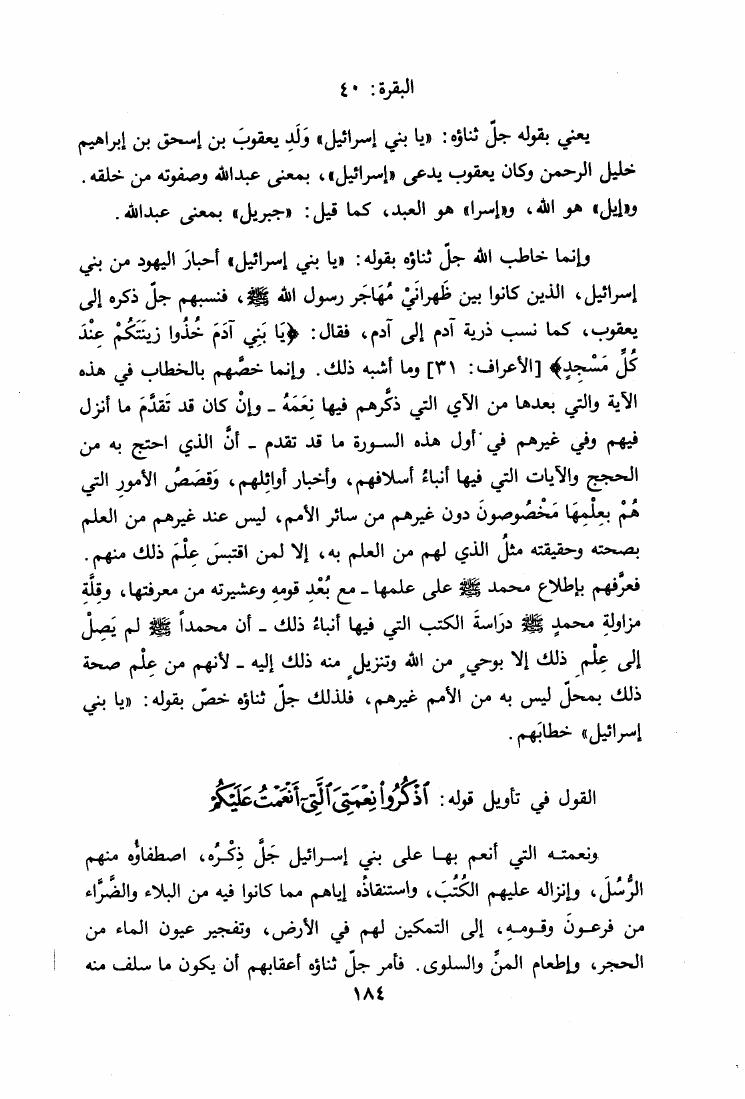 البقرة: ٤٠
يعني بقوله جلّ ثناؤه: «يا بني إسرائيل» وَلَدِ يعقوبَ بن إسحق بن إبراهيم
خليل الرحمن وكان يعقوب يدعى «إسرائيل»، بمعنى عبدالله وصفوته من خلقه.
و«إيل» هو الله، و«إسرا» هو العبد، كما قيل: «جبريل» بمعنى عبدالله.
وإنما خاطب الله جلّ ثناؤه بقوله: «يا بني إسرائيل» أحبارَ اليهود من بني
إسرائيل، الذين كانوا بين ظَهرانَيْ مُهَاجَر رسول الله ﷺ، فنسبهم جلّ ذكره إلى
يعقوب، كما نسب ذرية آدم إلى آدم، فقال: ﴿يَا بَنِي آدَمَ خُذُوا زِينَتَكُمْ عِنْدَ
كُلِّ مَسْجِدٍ﴾ [الأعراف: ٣١] وما أشبه ذلك. وإنما خصَّهم بالخطاب في هذه
الآية والتي بعدها من الآي التي ذكَّرهم فيها نِعَمَهُ ـ وإنْ كان قد تَقدَّمَ ما أنزل
فيهم وفي غيرهم في أول هذه السورة ما قد تقدم ـ أنَّ الذي احتج به من
الحجج والآيات التي فيها أنباءُ أسلافهم، وأخبار أوائِلهم، وَقصَصُ الأمورِ التي
هُمْ بِعِلْمِهَا مَخْصُوصونَ دون غيرهم من سائر الأمم، ليس عند غيرهم من العلم
بصحته وحقيقته مثلُ الذي لهم من العلم به، إلا لمن اقتبسَ عِلْمَ ذلك منهم.
فعرَّفهم بإطلاع محمد ﷺ على علمها ـ مع بُعْدِ قومهِ وعشيرته من معرفتها، وقِلَّةِ
مزاولةِ محمدٍ ﷺ درَاسةَ الكتب التي فيها أنباءُ ذلك ـ أن محمداً ﷺ لم يَصِلْ
إلى عِلْمِ ذلك إلا بوحيٍ من الله وتنزيلٍ منه ذلك إليه ـ لأنهم من عِلْم صحة
ذلك بمحلّ ليس به من الأمم غيرهم، فلذلك جلّ ثناؤه خصّ بقوله: «يا بني
إسرائيل» خطابَهم.
القول في تأويل قوله: ٱذْكُرُوا۟ نِعْمَتِىَ ٱلَّتِىٓ أَنْعَمْتُ عَلَيْكُمْ
ونعمتـه التي أنعم بهـا على بني إسـرائيل جَلَّ ذِكْـرُه، اصطفاؤُه منهم
الرُّسُلَ، وإنزاله عليهم الكُتُبَ، واستنقاذُه إياهم مما كانوا فيه من البلاء والضَّرَّاء
من فرعـونَ وقـومـهِ، إلى التمكين لهم في الأرض، وتفجير عيون الماء من
الحجر، وإطعام المنِّ والسلوى. فأمر جلّ ثناؤه أعقابهم أن يكون ما سلف منه
١٨٤